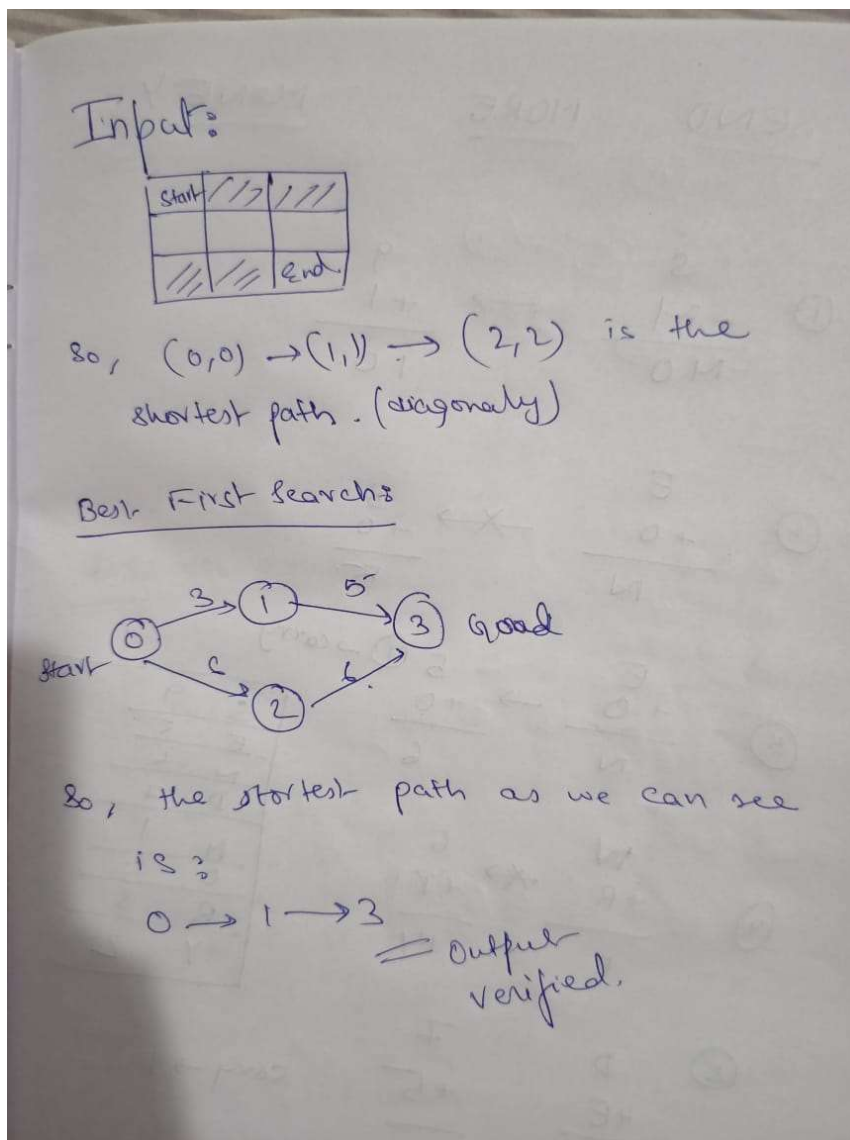 Input:
Start
End
So, (0,0) → (1,1) → (2,2) is the
shortest path. (diagonaly)
Best First Search:
3 1 5
0 3 Goad
Start 6 6
2
So, the stortest path as we can see
is:
0 → 1 → 3
= Output
verified.